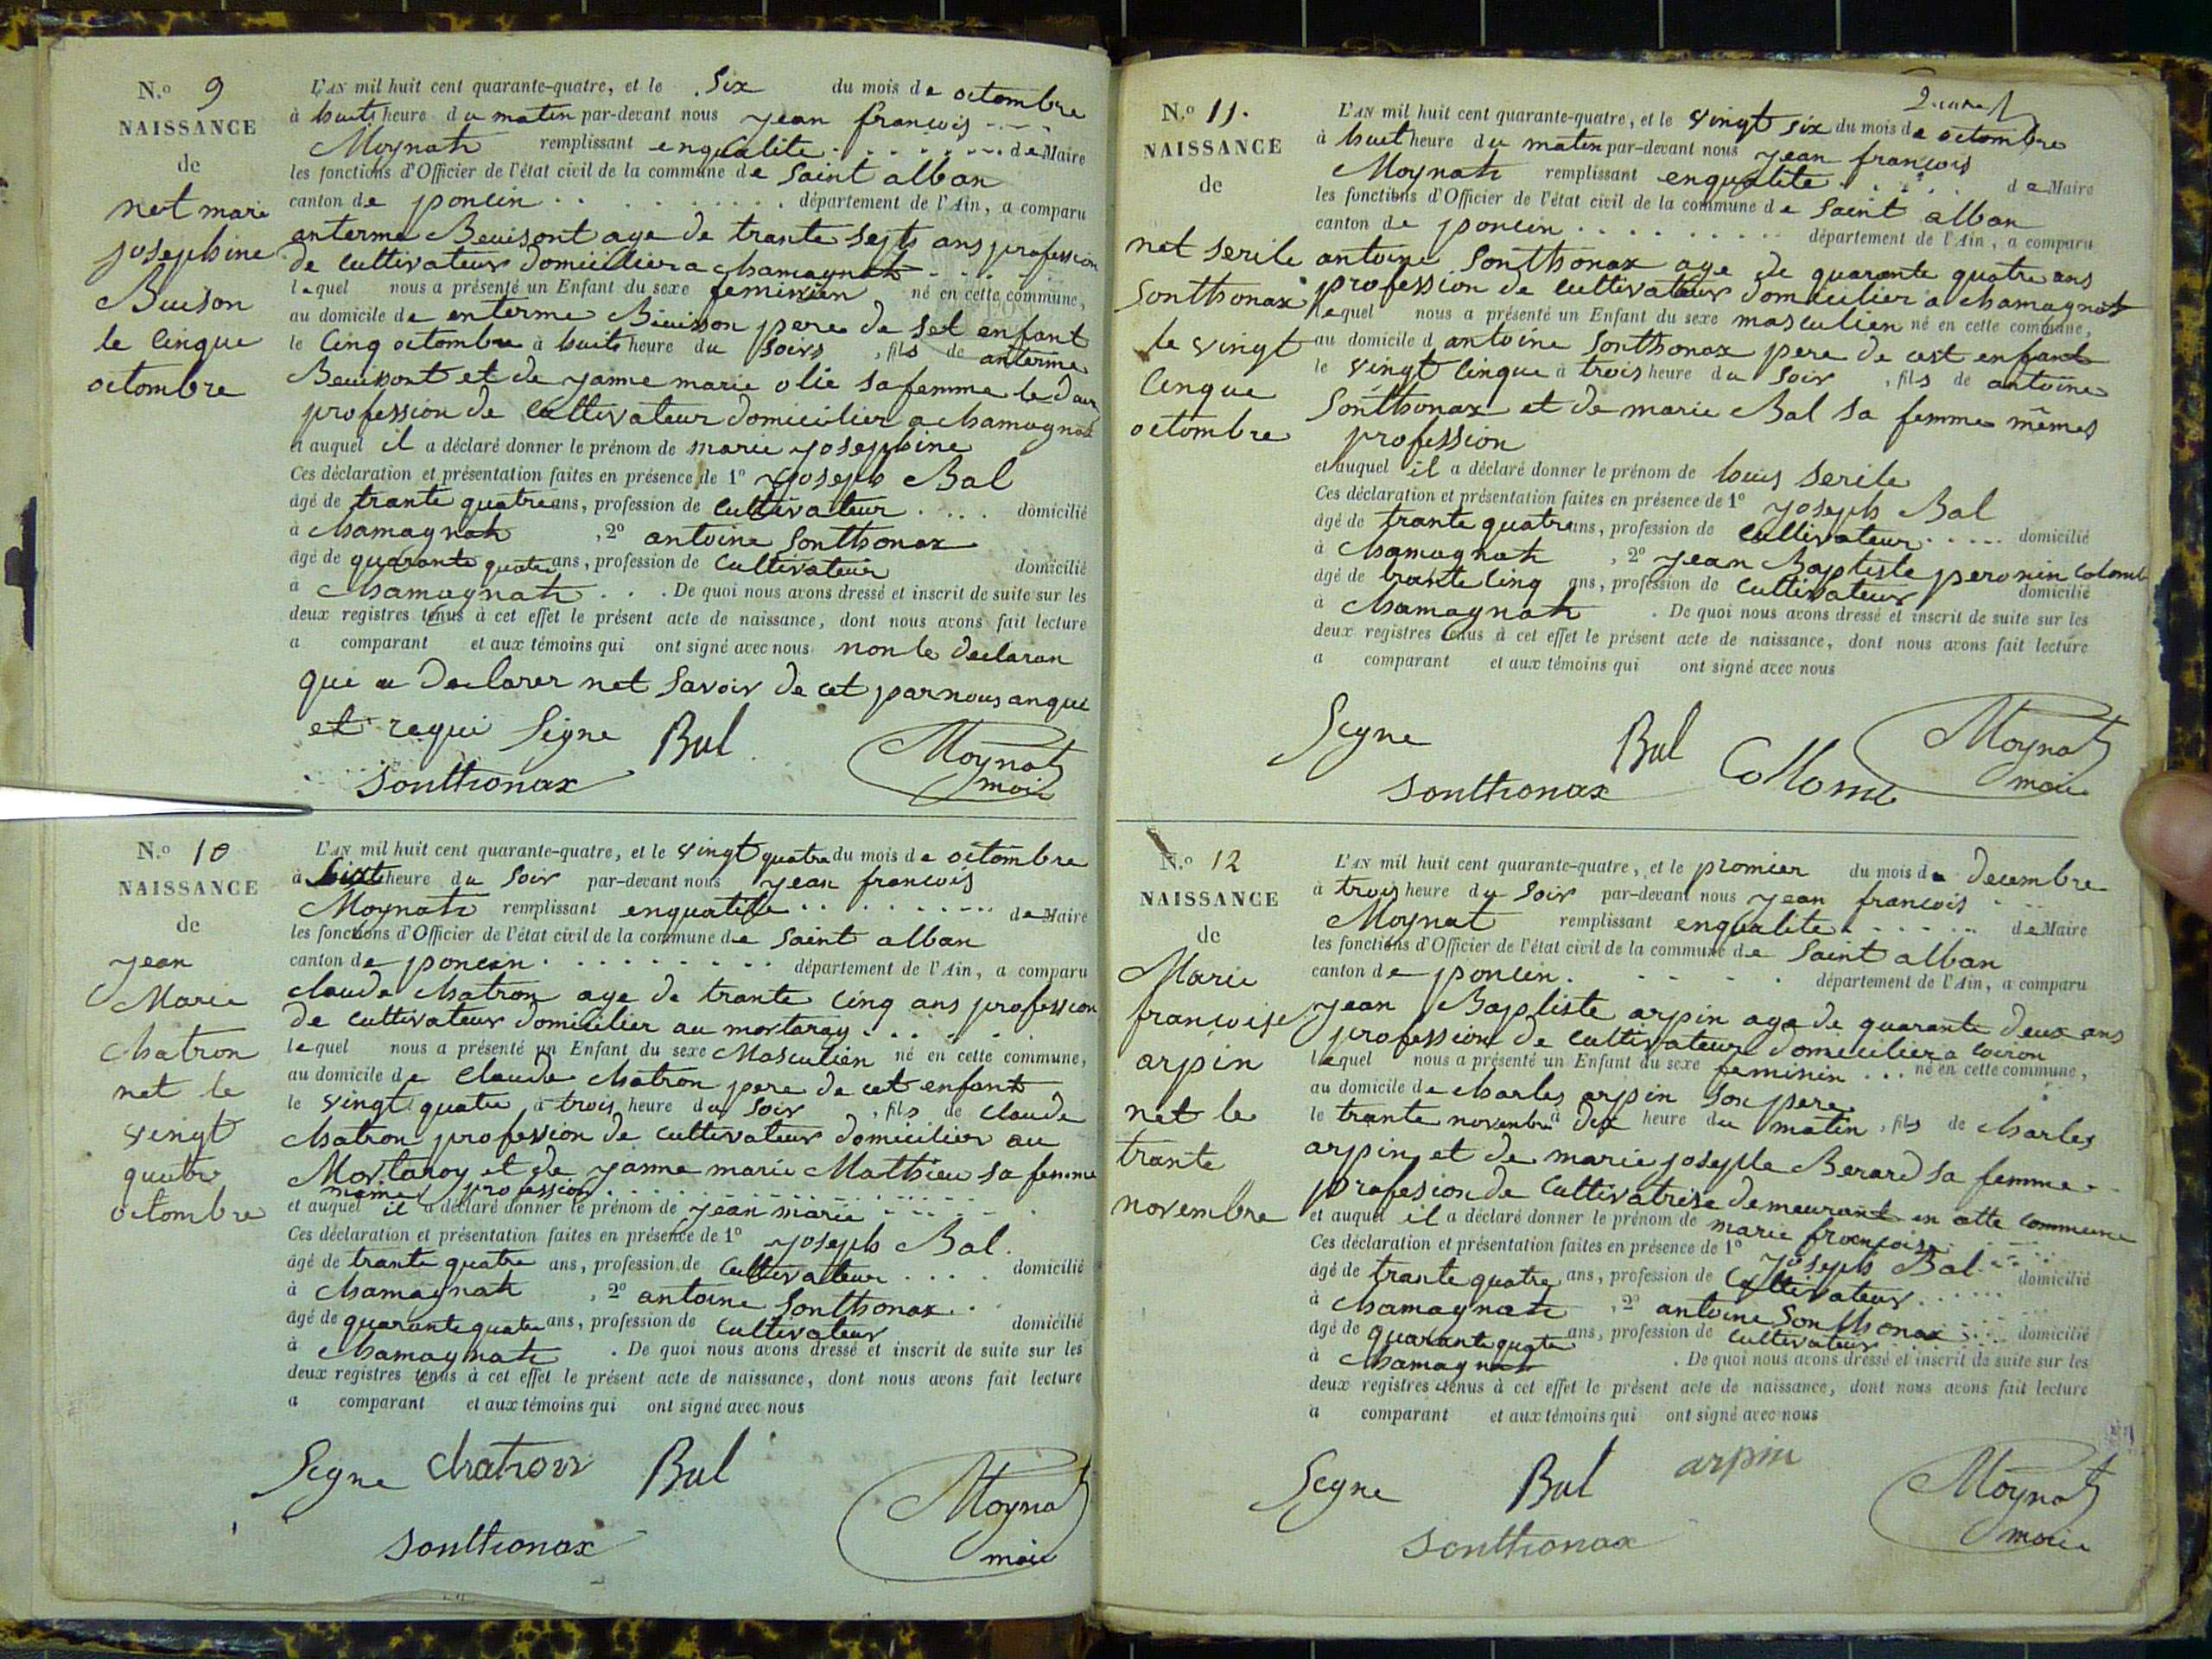 N.º 9
NAISSANCE
de
net marie
josephine
Buison
le cinque
octombre
L'AN mil huit cent quarante-quatre, et le Six du mois de octombre
à huit heure du matin par-devant nous jean francois
Moynat remplissant enqualite de Maire
les fonctions d'Officier de l'état civil de la commune de Saint alban
canton de poncin département de l'Ain, a comparu
anterme Beuisont age de trante septs ans profession
de cultivateur domicilier a chamagnat
lequel nous a présenté un Enfant du sexe feminien né en cette commune,
au domicile de enterme Beuisson pere de set enfant
le Cinq octombre à huit heure du Soirs, fils de anterme
Beuisont et de janne marie olie sa femme le daux
profession de cultivateur domicilier a chamagnat
et auquel il a déclaré donner le prénom de marie josephine
Ces déclaration et présentation faites en présence de 1º joseph Bal
âgé de trante quatre ans, profession de cultivateur domicilié
à chamagnat, 2º antoine Sonthonax
âgé de quarante quatre ans, profession de Cultivateur domicilié
à chamagnat. De quoi nous avons dressé et inscrit de suite sur les
deux registres tenus à cet effet le présent acte de naissance, dont nous avons fait lecture
a comparant et aux témoins qui ont signé avec nous non le declaran
que a declarer net Savoir de cet par nous anque
et requi Signe Bal
Sonthonax Moynat
maire
N.º 10
NAISSANCE
de
jean
Marie
chatron
net le
vingt
quatre
octombre
L'AN mil huit cent quarante-quatre, et le vingt quatre du mois de octombre
à heure du Soir par-devant nous jean francois
Moynat remplissant enqualite de Maire
les fonctions d'Officier de l'état civil de la commune de Saint alban
canton de poncin département de l'Ain, a comparu
claude chatron age de trante cinq ans profession
de cultivateur domicilier au mortaray
lequel nous a présenté un Enfant du sexe Masculien né en cette commune,
au domicile de Claude chatron pere de cet enfant
le vingt quatre à trois heure du Soir, fils de claude
chatron profession de cultivateur domicilier au
Mortaray et de janne marie Mathieu sa femme
meme profession
et auquel il a déclaré donner le prénom de jean marie
Ces déclaration et présentation faites en présence de 1º joseph Bal
âgé de trante quatre ans, profession de Cultivateur domicilié
à chamagnat, 2º antoine Sonthonax
âgé de quarante quatre ans, profession de Cultivateur domicilié
à chamagnat. De quoi nous avons dressé et inscrit de suite sur les
deux registres tenus à cet effet le présent acte de naissance, dont nous avons fait lecture
a comparant et aux témoins qui ont signé avec nous
Signe chatron Bal
Sonthonax Moynat
maire
N.º 11.
NAISSANCE
de
net serile
Sonthonax
le vingt
Cinque
octombre
L'AN mil huit cent quarante-quatre, et le vingt six du mois de octombre
à huit heure du matin par-devant nous jean francois
Moynat remplissant enqualite de Maire
les fonctions d'Officier de l'état civil de la commune de Saint alban
canton de poncin département de l'Ain, a comparu
antoine Sonthonax age de quarante quatre ans
profession de cultivateur domicilier a chamagnat
lequel nous a présenté un Enfant du sexe masculien né en cette commune,
au domicile d antoine Sonthonax pere de cest enfant
le vingt Cinque à trois heure du Soir, fils de antoine
Sonthonax et de marie Bal sa femme mêmes
profession
et auquel il a déclaré donner le prénom de louis serile
Ces déclaration et présentation faites en présence de 1º joseph Bal
âgé de trante quatre ans, profession de Cultivateur domicilié
à chamagnat, 2º jean Baptiste peronin Colomb
âgé de trante Cinq ans, profession de Cultivateur domicilié
à chamagnat. De quoi nous avons dressé et inscrit de suite sur les
deux registres tenus à cet effet le présent acte de naissance, dont nous avons fait lecture
a comparant et aux témoins qui ont signé avec nous
Segne Bal Moynat
Sonthonax Collomb maire
N.º 12
NAISSANCE
de
Marie
francoise
arpin
net le
trante
novembre
L'AN mil huit cent quarante-quatre, et le promier du mois de Decembre
à trois heure du Soir par-devant nous jean francois
Moynat remplissant enqualite de Maire
les fonctions d'Officier de l'état civil de la commune de Saint alban
canton de poncin. département de l'Ain, a comparu
jean Baptiste arpin age de quarante deux ans
profession de cultivateur domicilier a coiron
lequel nous a présenté un Enfant du sexe feminin né en cette commune,
au domicile de charles arpin Son pere
le trante novembre à dix heure du matin, fils de charles
arpin et de marie josephe Berard sa femme
profesion de Cultivatrise demeurant en cette commune
et auquel il a déclaré donner le prénom de marie francoise
Ces déclaration et présentation faites en présence de 1º joseph Bal
âgé de trante quatre ans, profession de Cultivateur domicilié
à chamagnat, 2º antoine Sonthonax
âgé de quarante quatre ans, profession de Cultivateur domicilié
à chamagnat. De quoi nous avons dressé et inscrit de suite sur les
deux registres tenus à cet effet le présent acte de naissance, dont nous avons fait lecture
a comparant et aux témoins qui ont signé avec nous
Segne Bal arpin Moynat
Sonthonax maire